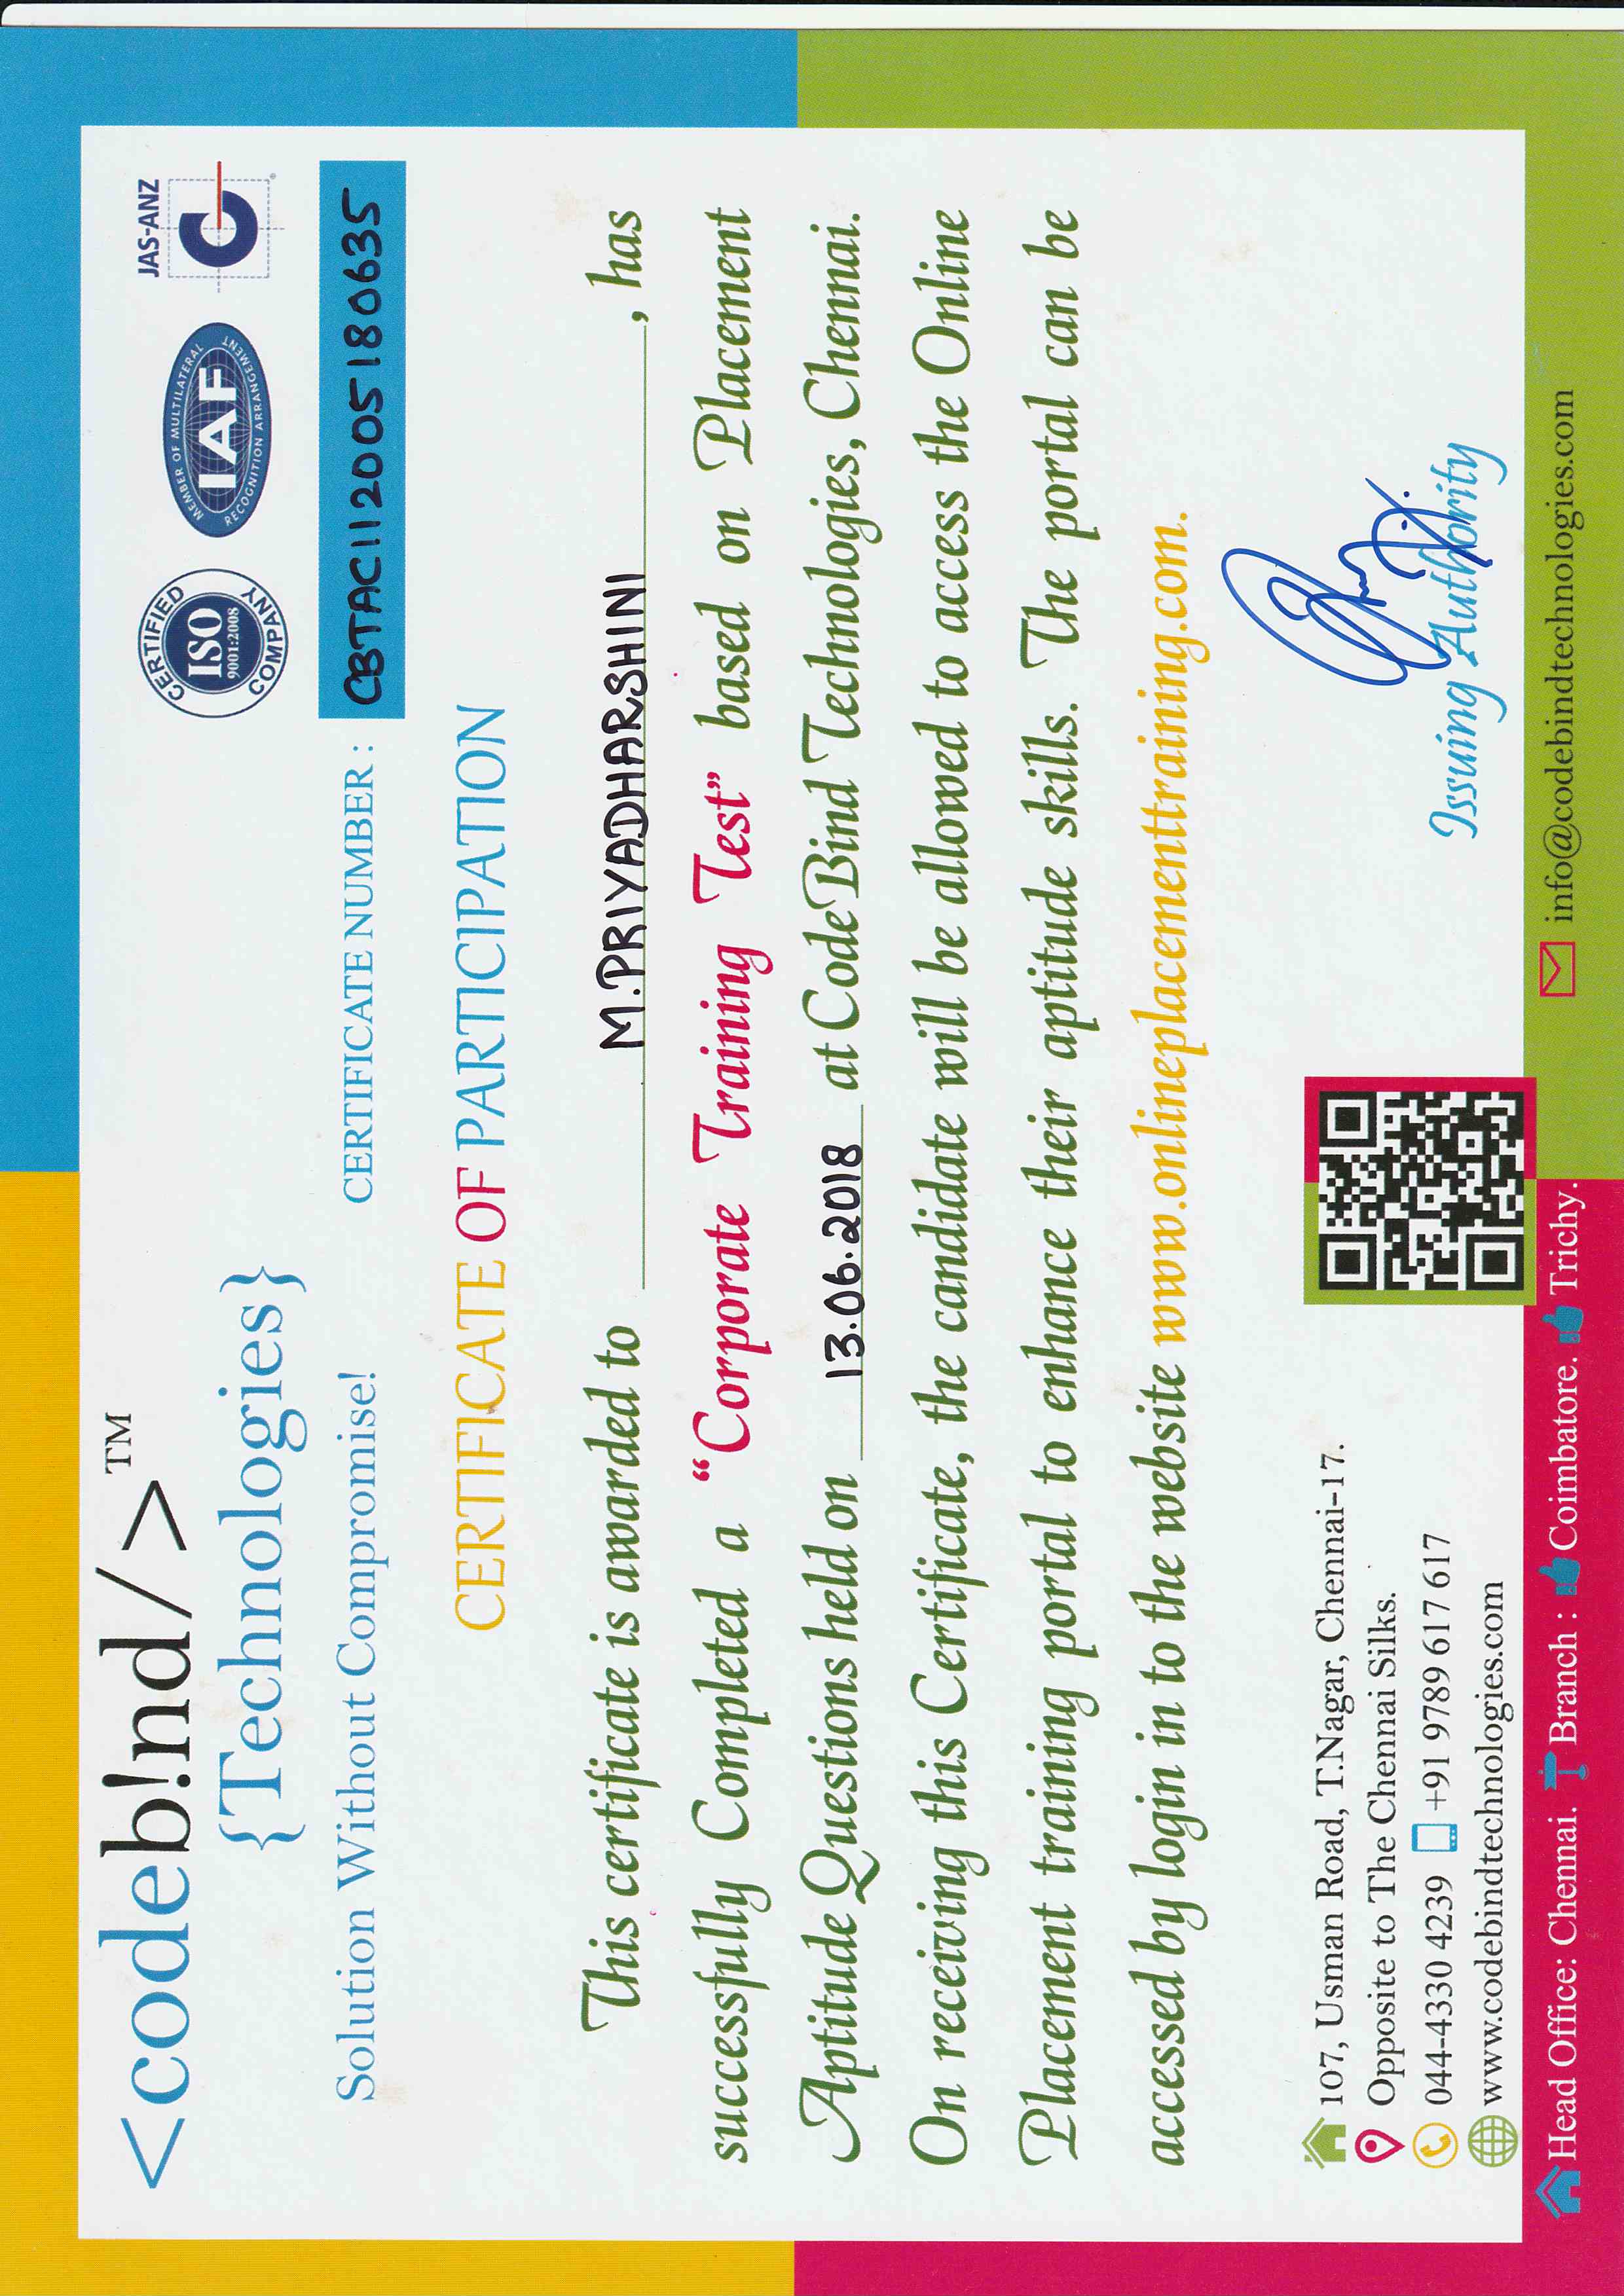 <codeb!nd/>™
{Technologies}
Solution Without Compromise!
CERTIFIED
ISO
9001:2008
COMPANY
MEMBER OF MULTILATERAL
IAF
RECOGNITION ARRANGEMENT
JAS-ANZ
CERTIFICATE NUMBER : CBTAC112005180635
CERTIFICATE OF PARTICIPATION
This certificate is awarded to M.PRIYADHARSHINI, has
successfully Completed a “Corporate Training Test” based on Placement
Aptitude Questions held on 13.06.2018 at CodeBind Technologies, Chennai.
On receiving this Certificate, the candidate will be allowed to access the Online
Placement training portal to enhance their aptitude skills. The portal can be
accessed by login in to the website www.onlineplacementtraining.com.
107, Usman Road, T.Nagar, Chennai-17.
Opposite to The Chennai Silks.
044-4330 4239 +91 9789 617 617
www.codebindtechnologies.com
Issuing Authority
Head Office: Chennai. Branch : Coimbatore. Trichy.
info@codebindtechnologies.com